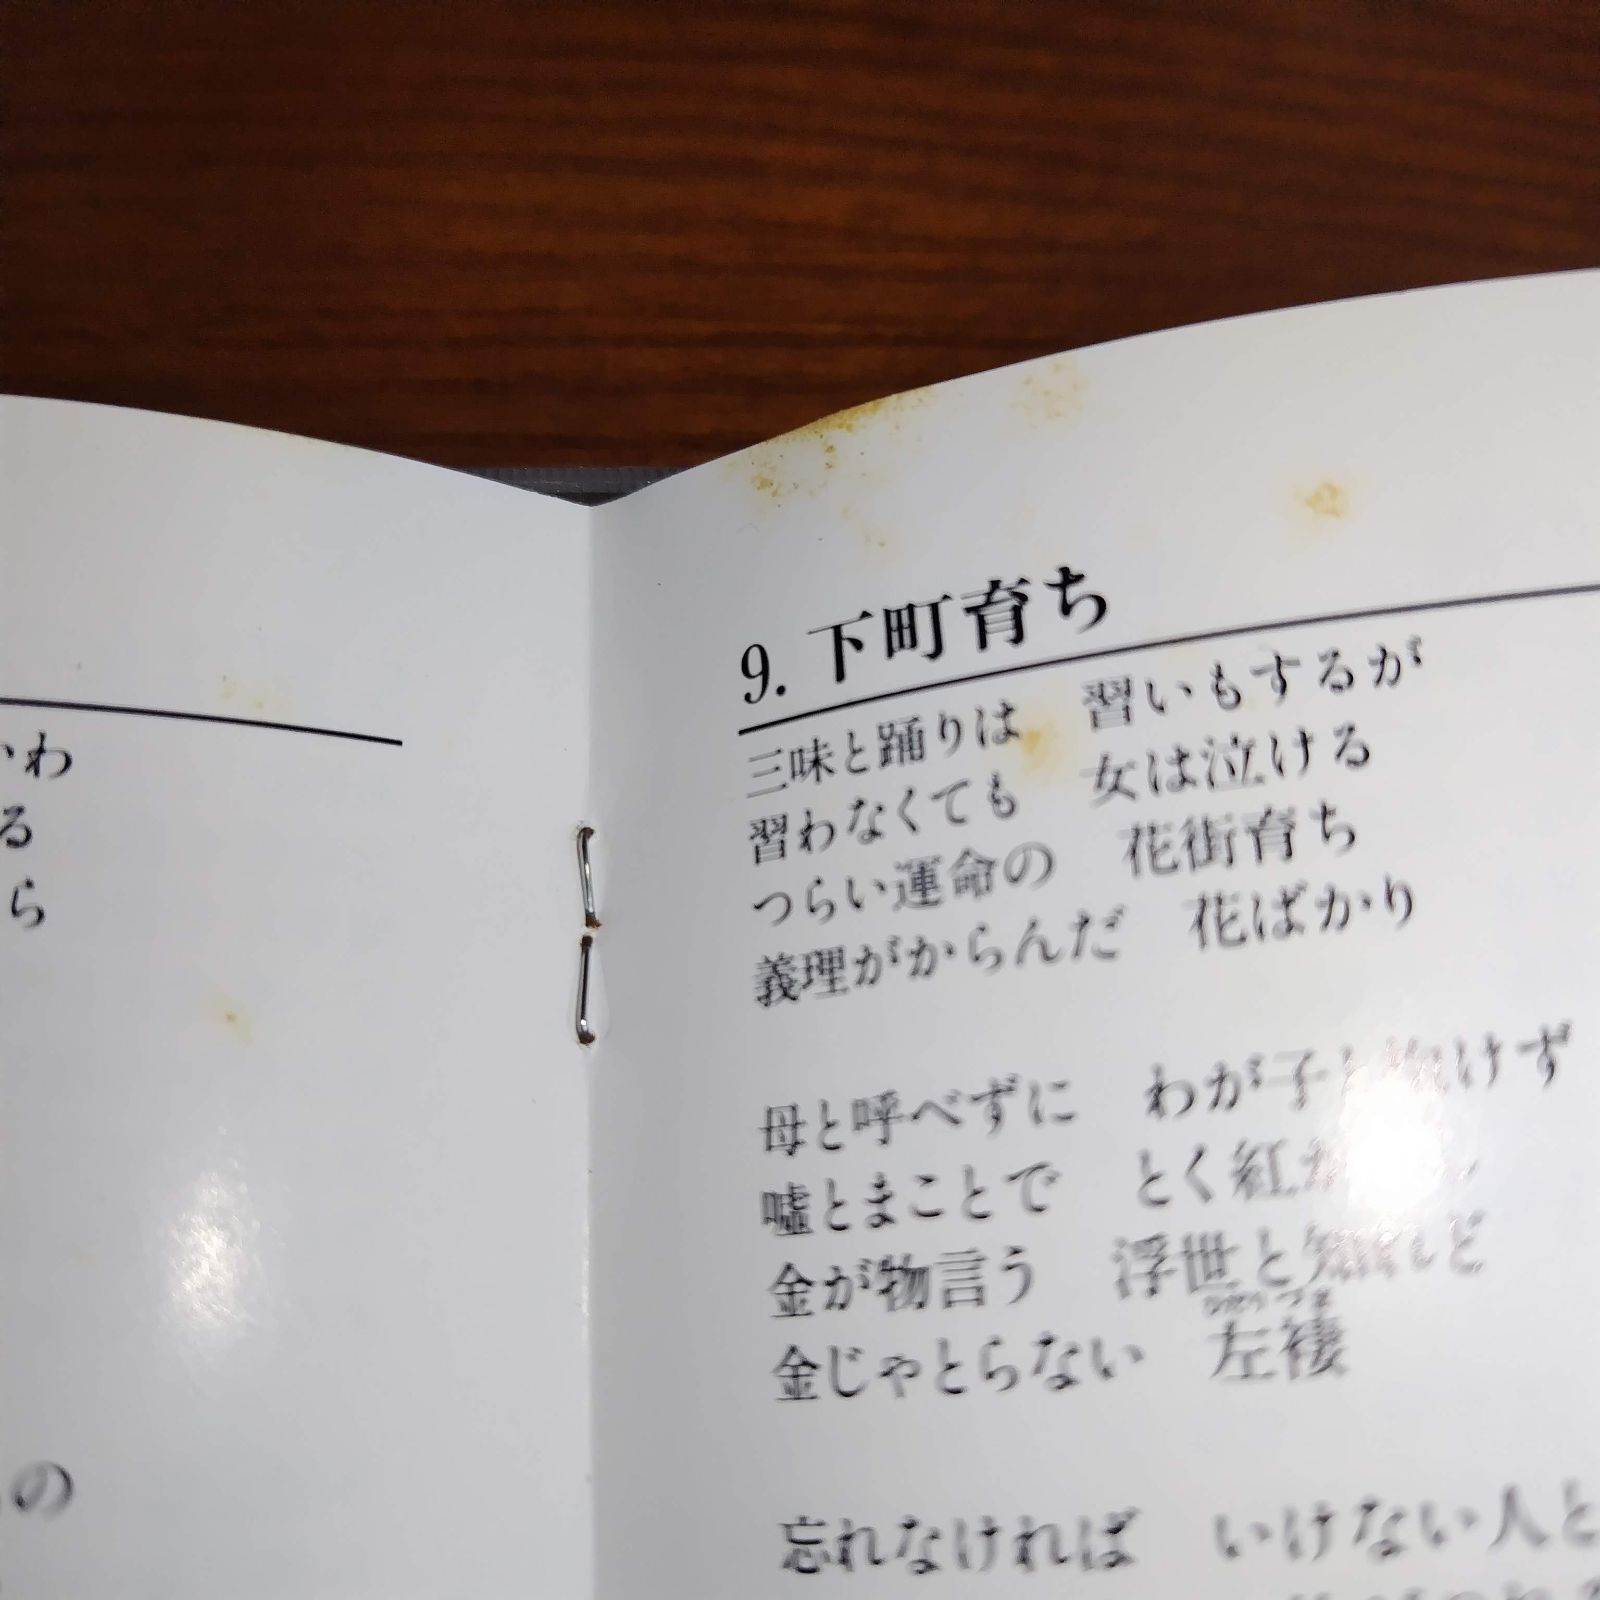 わ
る
ら
の
9. 下町育ち
三味と踊りは 習いもするが
習わなくても 女は泣ける
つらい運命の 花街育ち
義理がからんだ 花ばかり
母と呼べずに わが子 けず
嘘とまことで とく紅
金が物言う 浮世と知れど
金じゃとらない 左褄
忘れなければ いけない人と